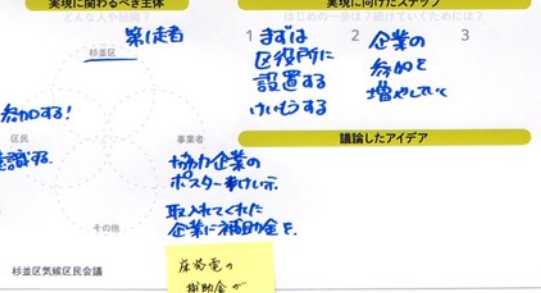 実現に関わるべき主体
どんな人や組織?
第1走者
杉並区
参加する!
区民
意識する.
事業者
協力企業の
ポスター掲示.
取入れてくれた
企業に補助金を.
その他
杉並区気候区民会議
実現に向けたステップ
はじめの一歩は?続けていくためには?
1 まずは
区役所に
設置する
けいぞうする
2 企業の
参加を
増やしていく
3
議論したアイデア
床発電の
補助金が